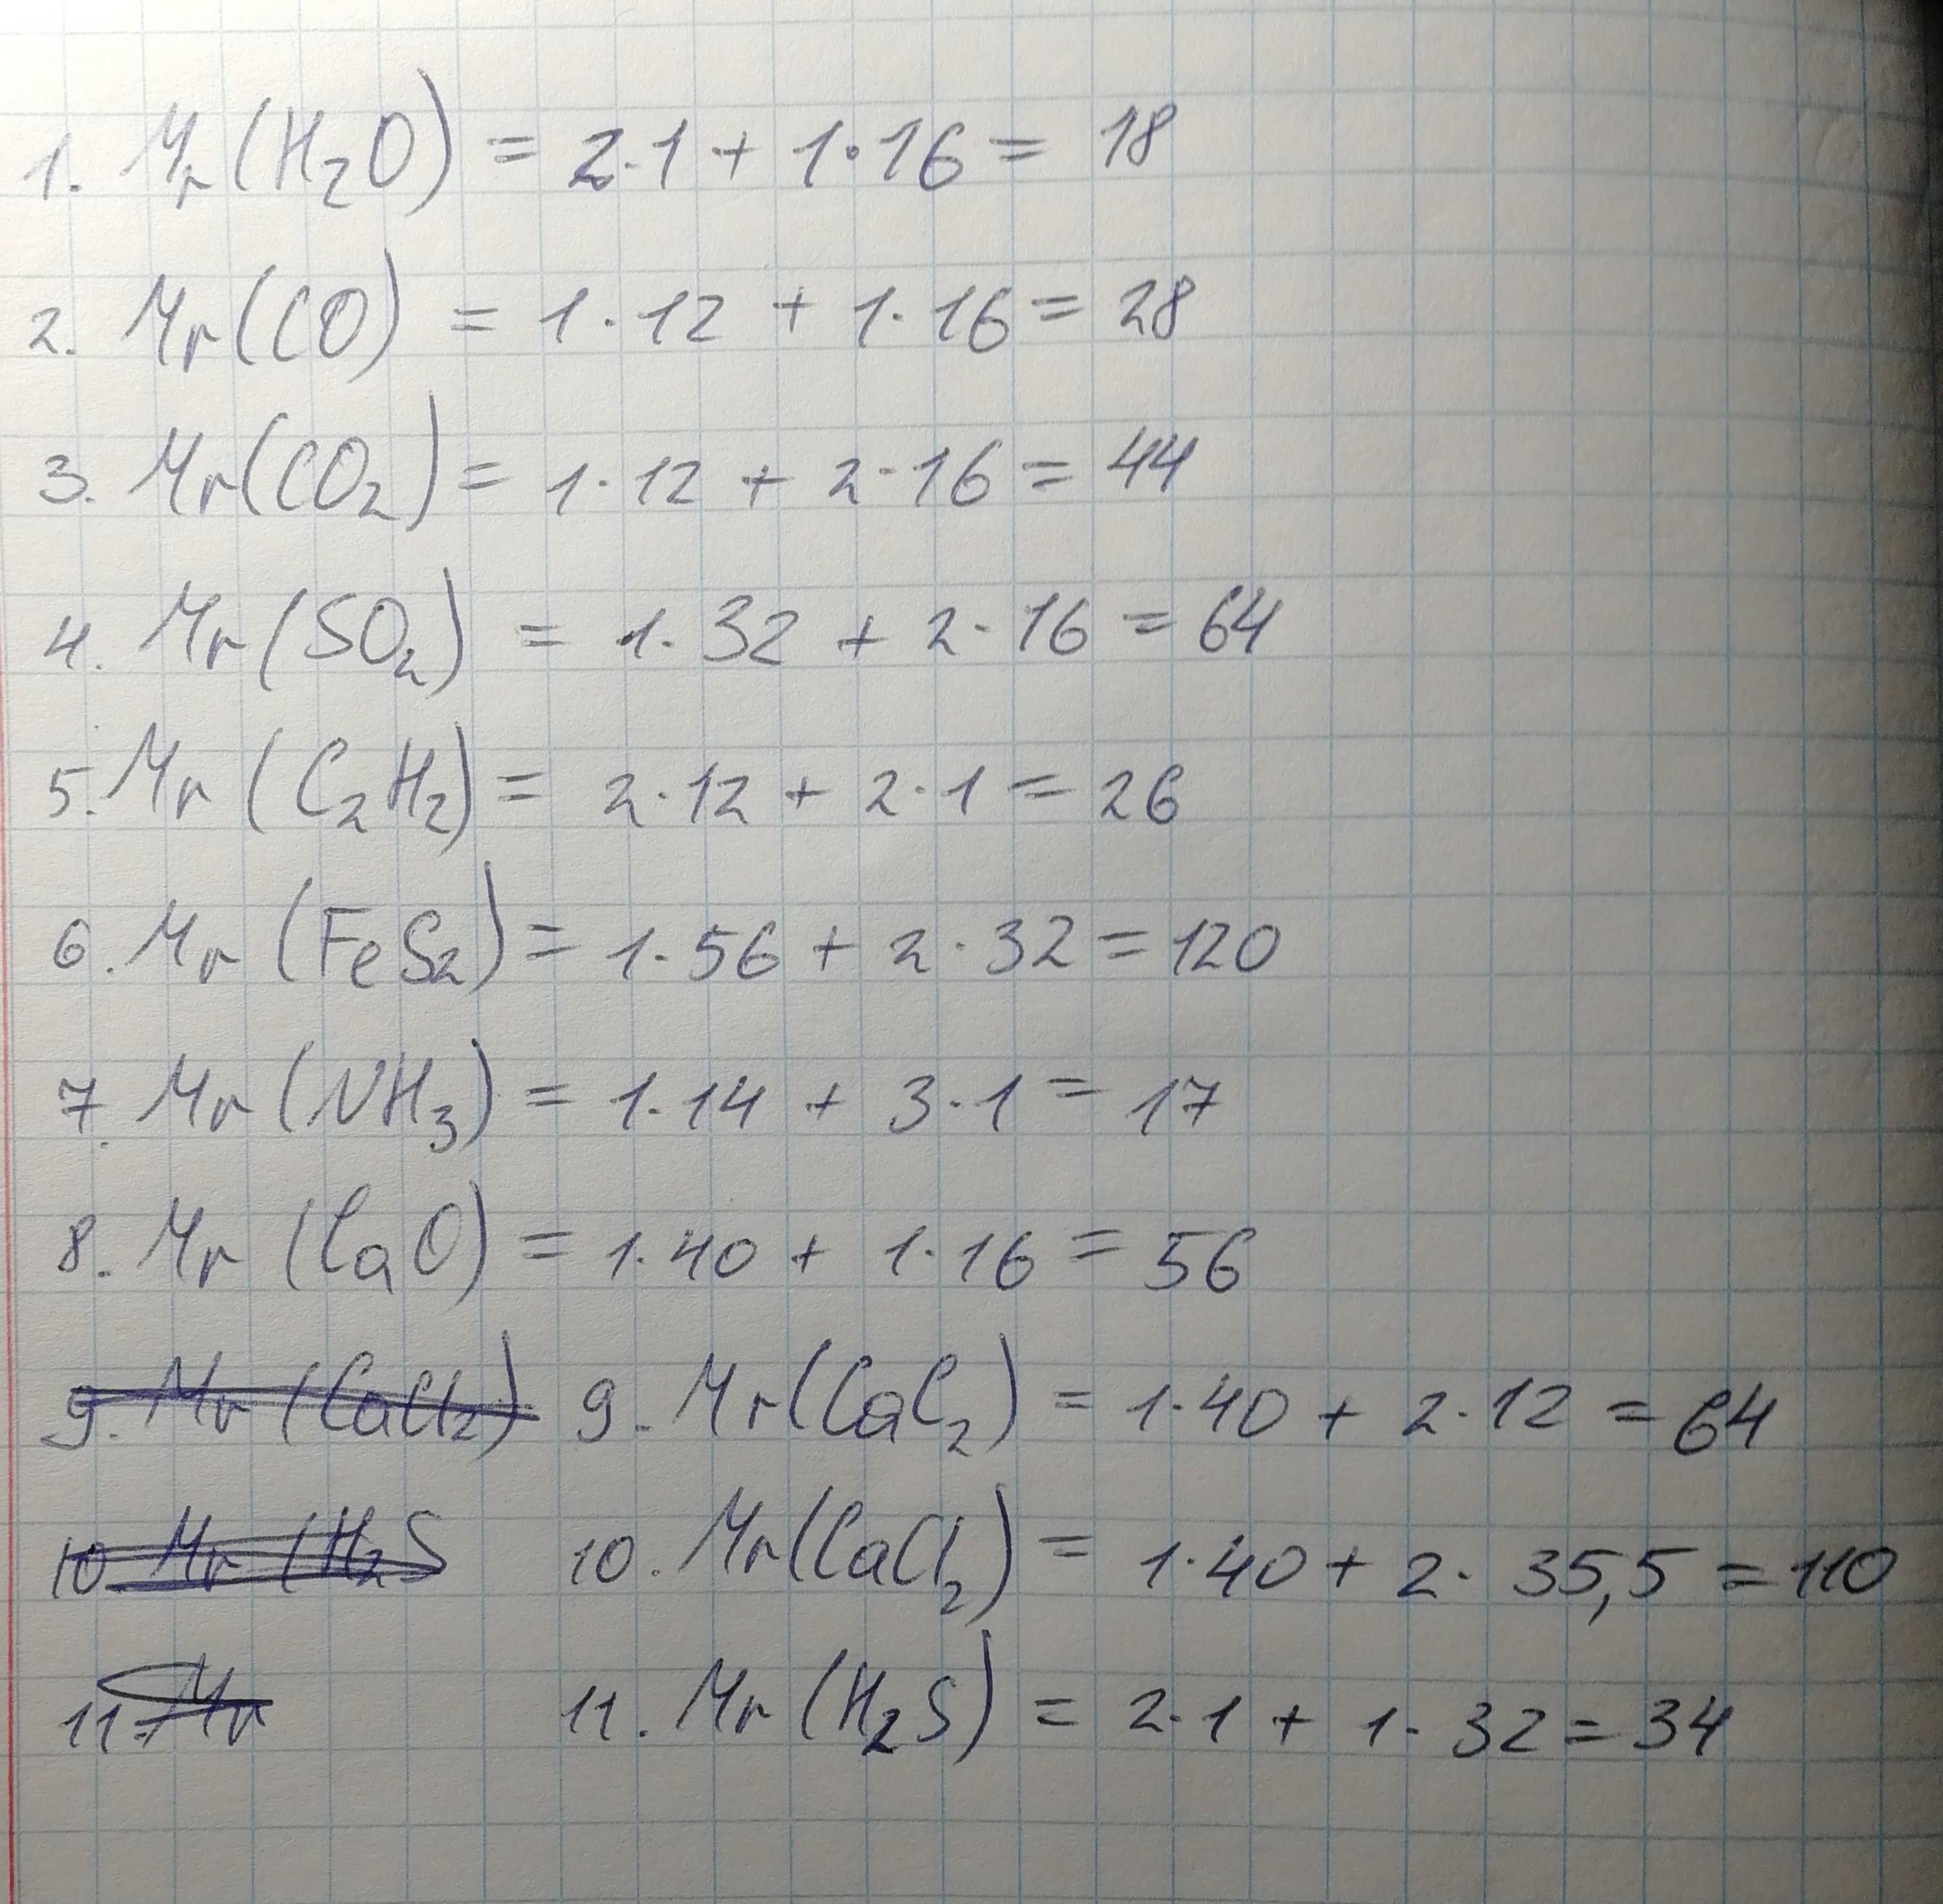 1. Mr(H₂O) = 2·1 + 1·16 = 18
2. Mr(CO) = 1·12 + 1·16 = 28
3. Mr(CO₂) = 1·12 + 2·16 = 44
4. Mr(SO₂) = 1·32 + 2·16 = 64
5. Mr(C₂H₂) = 2·12 + 2·1 = 26
6. Mr(FeS₂) = 1·56 + 2·32 = 120
7. Mr(NH₃) = 1·14 + 3·1 = 17
8. Mr(CaO) = 1·40 + 1·16 = 56
9. Mr(CaCl₂) 9. Mr(CaC₂) = 1·40 + 2·12 = 64
10 Mr(H₂S 10. Mr(CaCl₂) = 1·40 + 2·35,5 = 110
11. Mr 11. Mr(H₂S) = 2·1 + 1·32 = 34